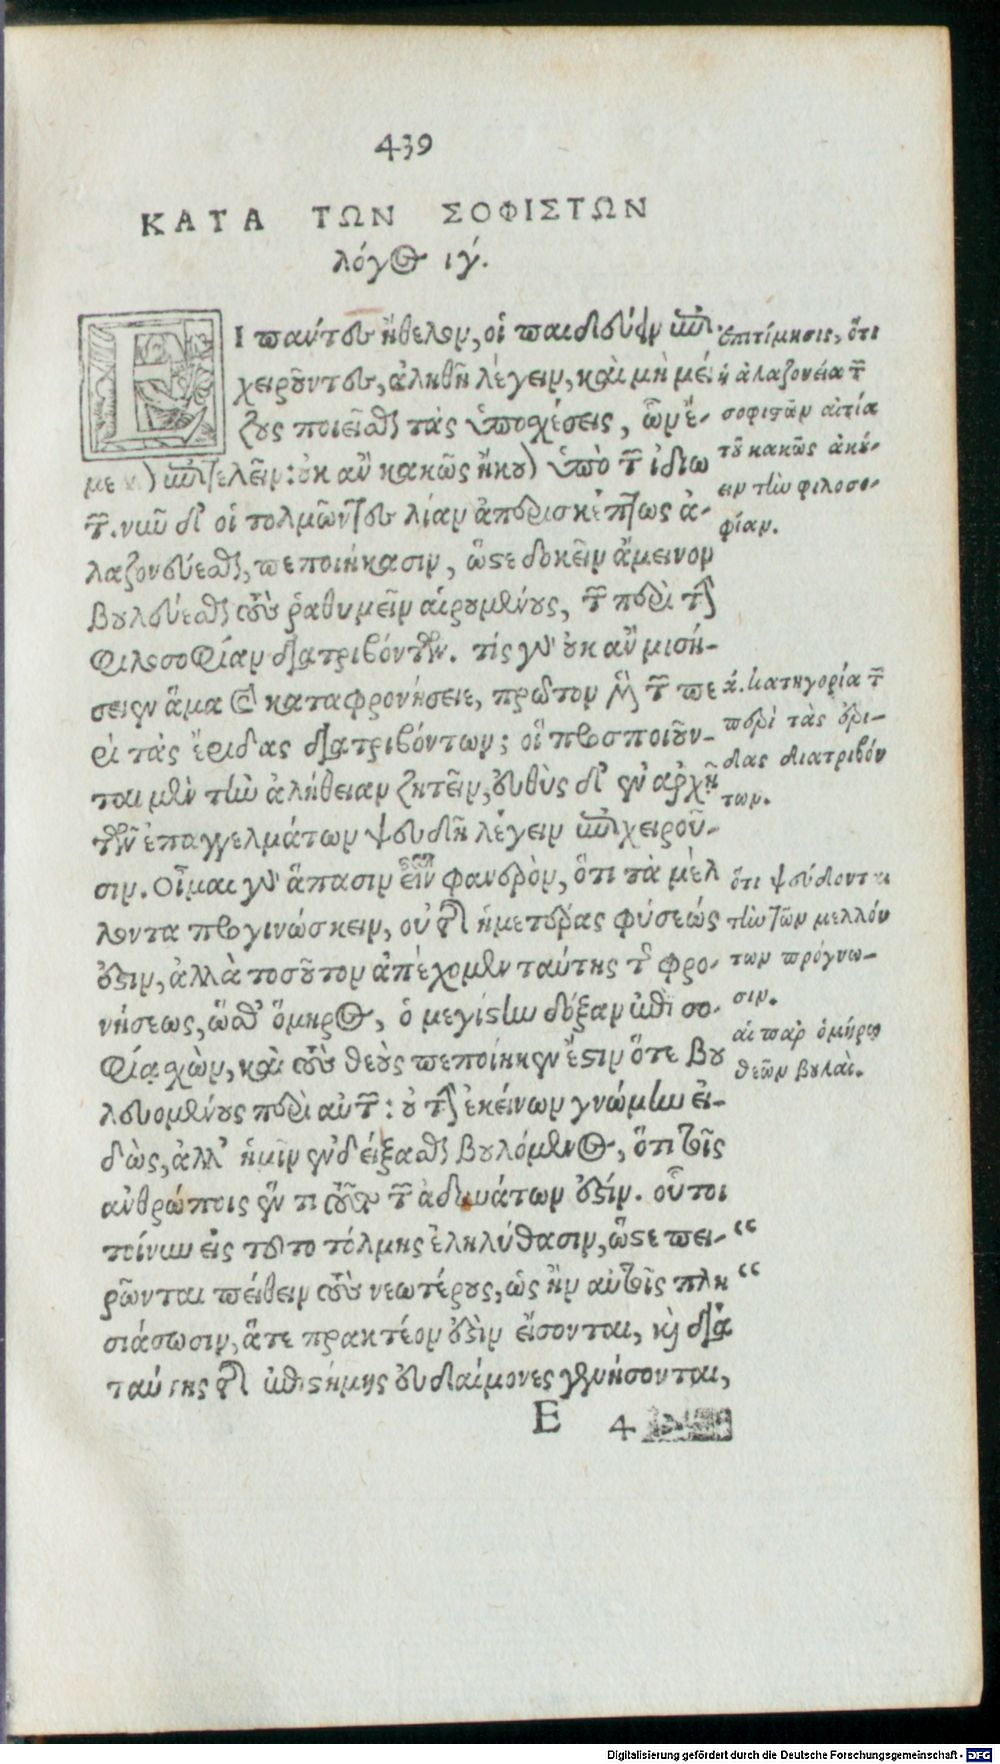 439
ΚΑΤΑ ΤΩΝ ΣΟΦΙΣΤΩΝ
λόγος ιγ΄.
ΕΙ πάντες ἤθελον, οἱ παιδεύειν ἐπι-
χειροῦντες, ἀληθῆ λέγειν, καὶ μὴ μεί
ζους ποιεῖσθαι τὰς ὑποχέσεις, ὧν ἔ-
με ) ἐπιτελεῖν: οὐκ ἂν κακῶς ἤκουον ὑπὸ τῶν ἰδιω
τῶν. νῦν δ' οἱ τολμῶντες λίαν ἀπερισκέπτως ἀ-
λαζονεύεσθαι, πεποιήκασιν, ὥστε δοκεῖν ἄμεινον
βουλεύεσθαι τοὺς ῥαθυμεῖν αἱρουμένους, τῶν περὶ τὴν
φιλοσοφίαν διατριβόντων. τίς γὰρ οὐκ ἂν μισή-
σειεν ἅμα καὶ καταφρονήσειε, πρῶτον μὲν τῶν πε
ρὶ τὰς ἔριδας διατριβόντων; οἳ προσποιοῦν-
ται μὲν τὴν ἀλήθειαν ζητεῖν, εὐθὺς δ' ἐν ἀρχῇ
τῶν ἐπαγγελμάτων ψευδῆ λέγειν ἐπιχειροῦ-
σιν. οἶμαι γὰρ ἅπασιν εἶναι φανερὸν, ὅτι τὰ μέλ
λοντα προγινώσκειν, οὐ τῆς ἡμετέρας φύσεώς
ἐστιν, ἀλλὰ τοσοῦτον ἀπέχομεν ταύτης τῆς φρο-
νήσεως, ὥσθ' ὅμηρος, ὁ μεγίστην δόξαν ἐπὶ σο-
φίᾳ χὼν, καὶ τοὺς θεοὺς πεποίηκεν ἔστιν ὅτε βου
λευομένους περὶ αὐτῶν: οὐ τὴν ἐκείνων γνώμην εἰ-
δὼς, ἀλλ' ἡμῖν ἐνδείξασθαι βουλόμενος, ὅτι τοῖς
ἀνθρώποις ἓν τι τοῦτο τῶν ἀδυνάτων ἐστίν. οὗτοι
τοίνυν εἰς τοῦτο τόλμης ἐληλύθασιν, ὥστε πει- “
ρῶνται πείθειν τοὺς νεωτέρους, ὡς ἢν αὐτοῖς πλη “
σιάσωσιν, ἅτε πρακτέον ἐστὶν εἴσονται, καὶ διὰ
ταύτης τῆς ἐπιστήμης εὐδαίμονες γενήσονται,
E 4
ἐπιτίμησις, ὅτι
ἡ ἀλαζονεία τῶν
σοφιστῶν αἰτία
τοῦ κακῶς ἀκού-
ειν τὴν φιλοσο-
φίαν.
ά. κατηγορία τῶν
περὶ τὰς ἔρι-
δας διατριβόν
των.
ὅτι ψεύδονται
τὴν τῶν μελλόν
των πρόγνω-
σιν.
αἱ παρ ὁμήρῳ
θεῶν βουλαὶ.
Digitalisierung gefördert durch die Deutsche Forschungsgemeinschaft - DFG